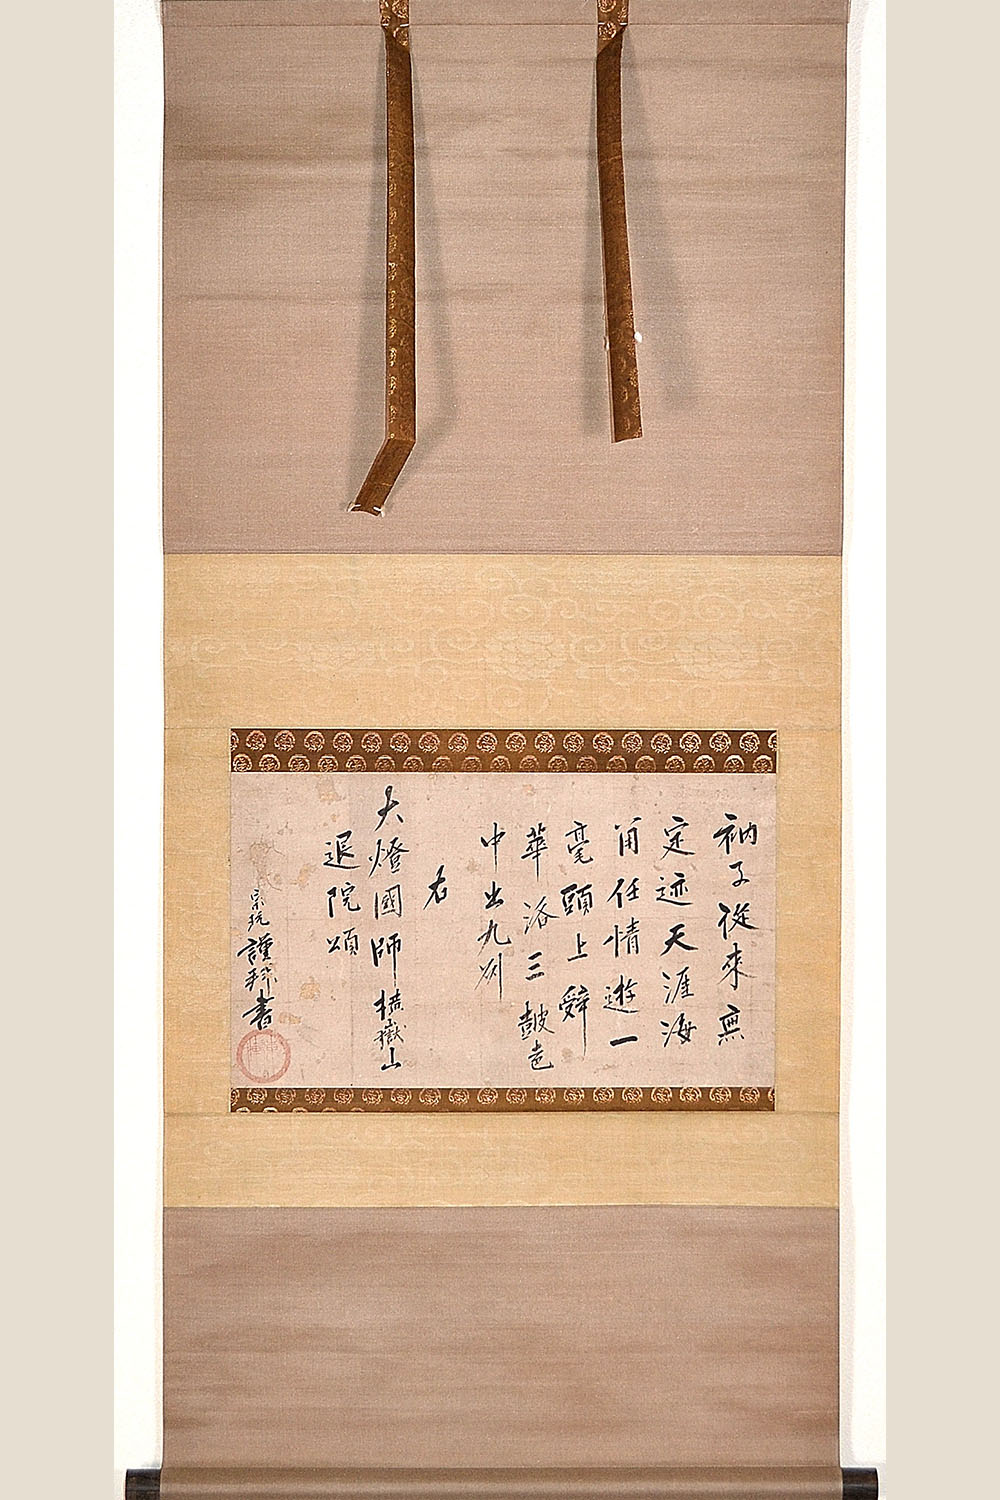 衲子從來無
定迹天涯海
角任情遊一
毫頭上
華洛三鼓邑
中出九
右
大燈國師横嶽山
退院頌
宗玩謹拜書